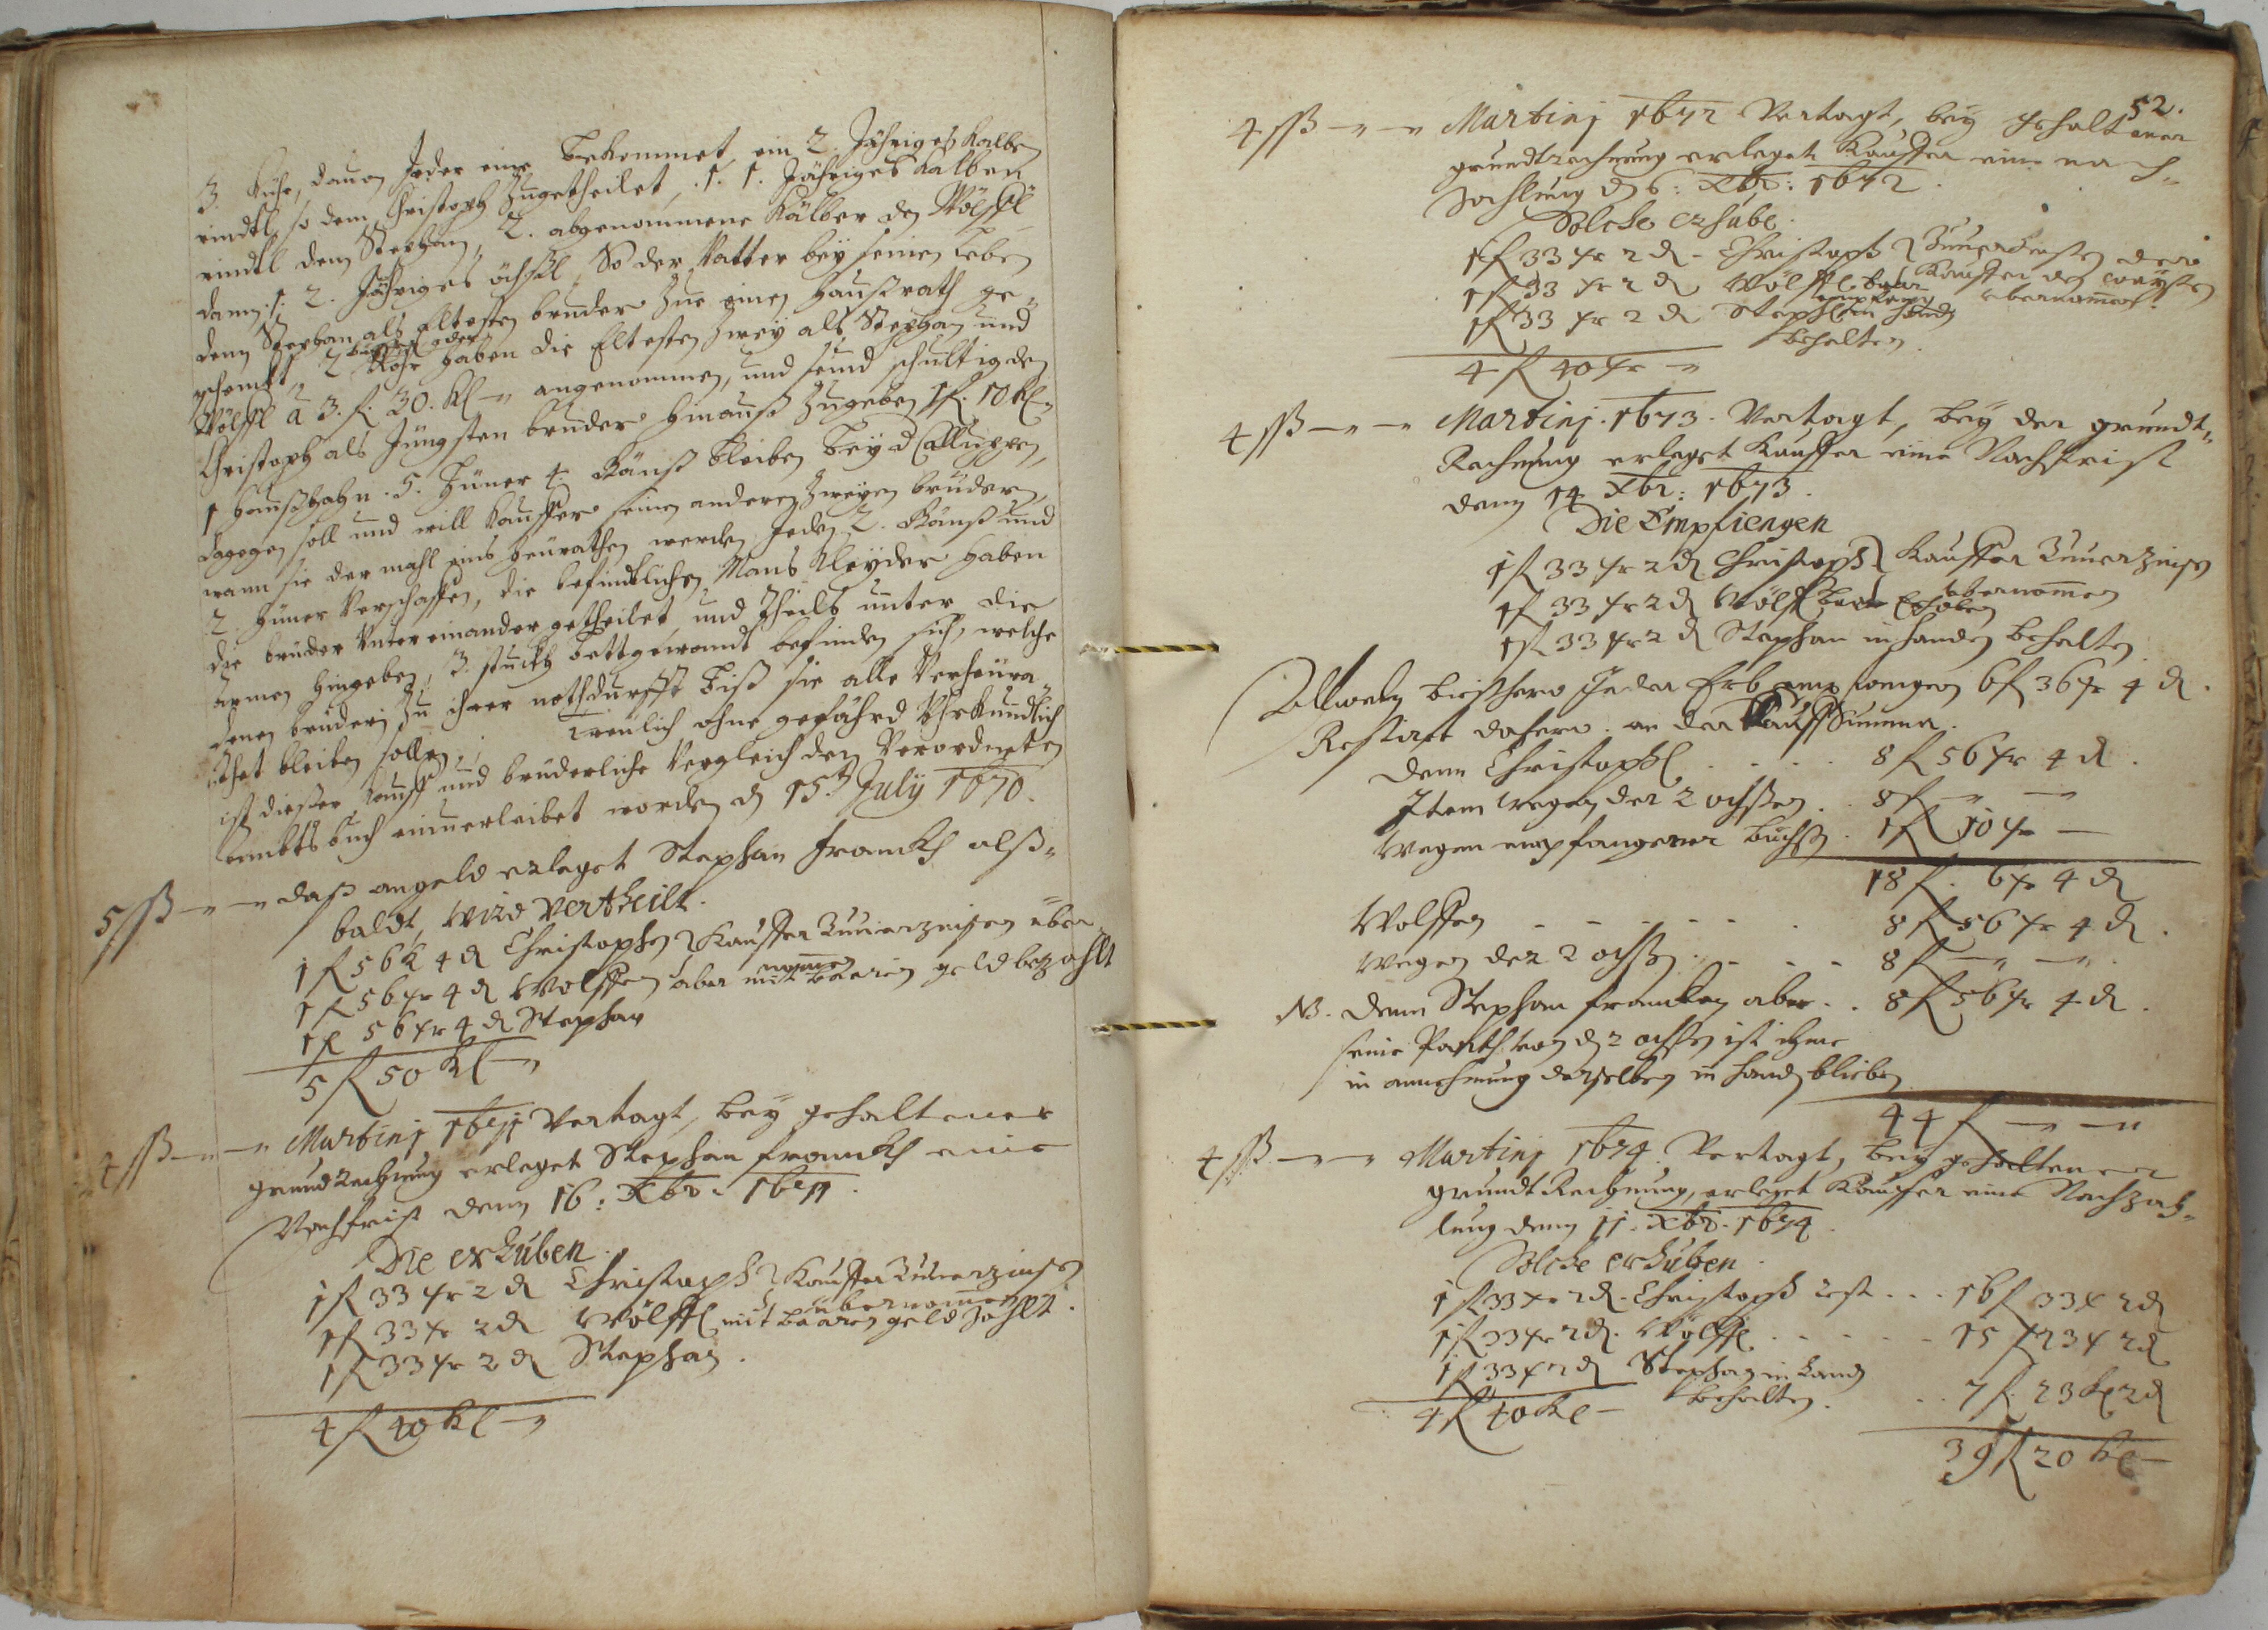 3. Kühe, dauon Jeder eine bekommet, ein 2. Jähriges Kalben
rindtl, so dem Christoph Zugetheilet, .1. 1. Jähriges Kalben
rindtl dem Stephan, 2. abgenommene Kälber den Wölffl
dann .1. 2. Jähriges öchßl, So der Vatter bey seinen Leben
dem Stephan alß Eltesten bruder Zue einen haußrath ge-
schenckt, 2 Rohr haben die Eltesten Zwey als Stephan und
büchsen oder
Wölffl â 3. f. 30. Kl angenommen, und seind schultig den
Christoph als Jüngsten bruder hinauß Zugeben 1f. 10 Kl
1 haußhahn. 5. Hüner 4. Gänß bleiben bey d
dagegen soll und will Kauffer seinen anderen Zweyen brüdern,
wann sie der mahl eins heurathen werden Jeden 2. Gänß und
2. Hüner Verschaffen, die befindtlichen Mans Kleyder haben
die brüder Unter einander getheilet, und Theils unter die
Armen hingeben, 3. stuckh bettgewandt befinden sich, welche
denen brüdern Zu ihrer nothdurfft biß sie alle Verheura-
thet bleiben sollen, treulich ohne gefährd Uhrkundtlich
ist dießer Kauff und brüderliche Vergleich den Verordneten
Ambts buch einuerleibet worden d 15t July 1670.
5 ß daß angeld erleget Stephan Franckh alß-
baldt, wird vertheilt.
1 f 56 K 4 d Christophen Kauffer Zuuerzinsen über
nommen
1 f 56 xr 4 d Wolffen aber mit baaren geld bezahlt
1 f 56 xr 4 d Stephan
5 f 50 Kl
4 ß Martinj 1671 Vertagt, bey gehaltener
grundRechnung erleget Stephan Franckh eine
Nachfrist denn 16: Xbr. 1671.
Die erhuben.
1 f 33 xr 2 d Christoph Kauffer Zuuerzinsen
übernommen
1 f 33 xr 2 d Wölffl mit baaren geld Zahlt.
1 f 33 xr 2 d Stephan.
4 f 40 Kl
52.
4 ß Martinj 1672 Vertagt, bey gehaltener
grundtrechnung erleget Kauffer eine nach-
Zachlung d 6: Xbr: 1672.
Solche erhube.
1 f 33 xr 2 d - Christoph
1 f 33 xr 2 d Wölffl baar Kauffer
empfangen übernommen.
1 f 33 xr 2 d Stephan in handt
behalten.
4 f 40 xr
4 ß Martinj. 1673. Vertagt, bey der grundt-
Rachnung erleget Kauffer eine Nachfrist
denn 14 Xbr: 1673.
Die Empfiengen
1 f 33 xr 2 d Christoph Kauffer Zuuerzinsen
übernommen
1 f 33 xr 2 d Wölffl baar Erhoben
1 f 33 xr 2 d Stephan in handen behalten.
Allweln bießhero Jeder Erb empfangen 6 f 36 xr 4 d.
Restirt dahero an der KauffSumma.
denn Christophl . . . . 8 f 56 xr 4 d.
Item wegen der 2 ochssen . . 8 f
Wegen empfangener büchß . 1 f 10 xr
18 f. 6 xr 4 d
Wolffen . . . . . 8 f 56 xr 4 d.
Wegen der 2 ochssen . . . 8 f
NB. denn Stephan francken aber . . 8 f 56 xr 4 d.
seine Parth von d 2 ochssen ist ihme
in annehmung derselben in handen blieben
44 f
4 ß Martinj 1674 Vertagt, bey gehaltener
grundt Rachnung, erleget Kauffer eine Nachzah-
lung denn 11. Xbr. 1674.
Solche erhuben.
1 f 33 xr 2 d. Christoph rest . . . 16 f 33 x 2 d
1 f 33 xr 2 d. Wölffl . . . . . 15 f 23 x 2 d
1 f 33 x 2 d Stephan in handen
behalten. . . 7 f. 23 Kl 2 d
4 f 40 Kl
39 f 20 Kl